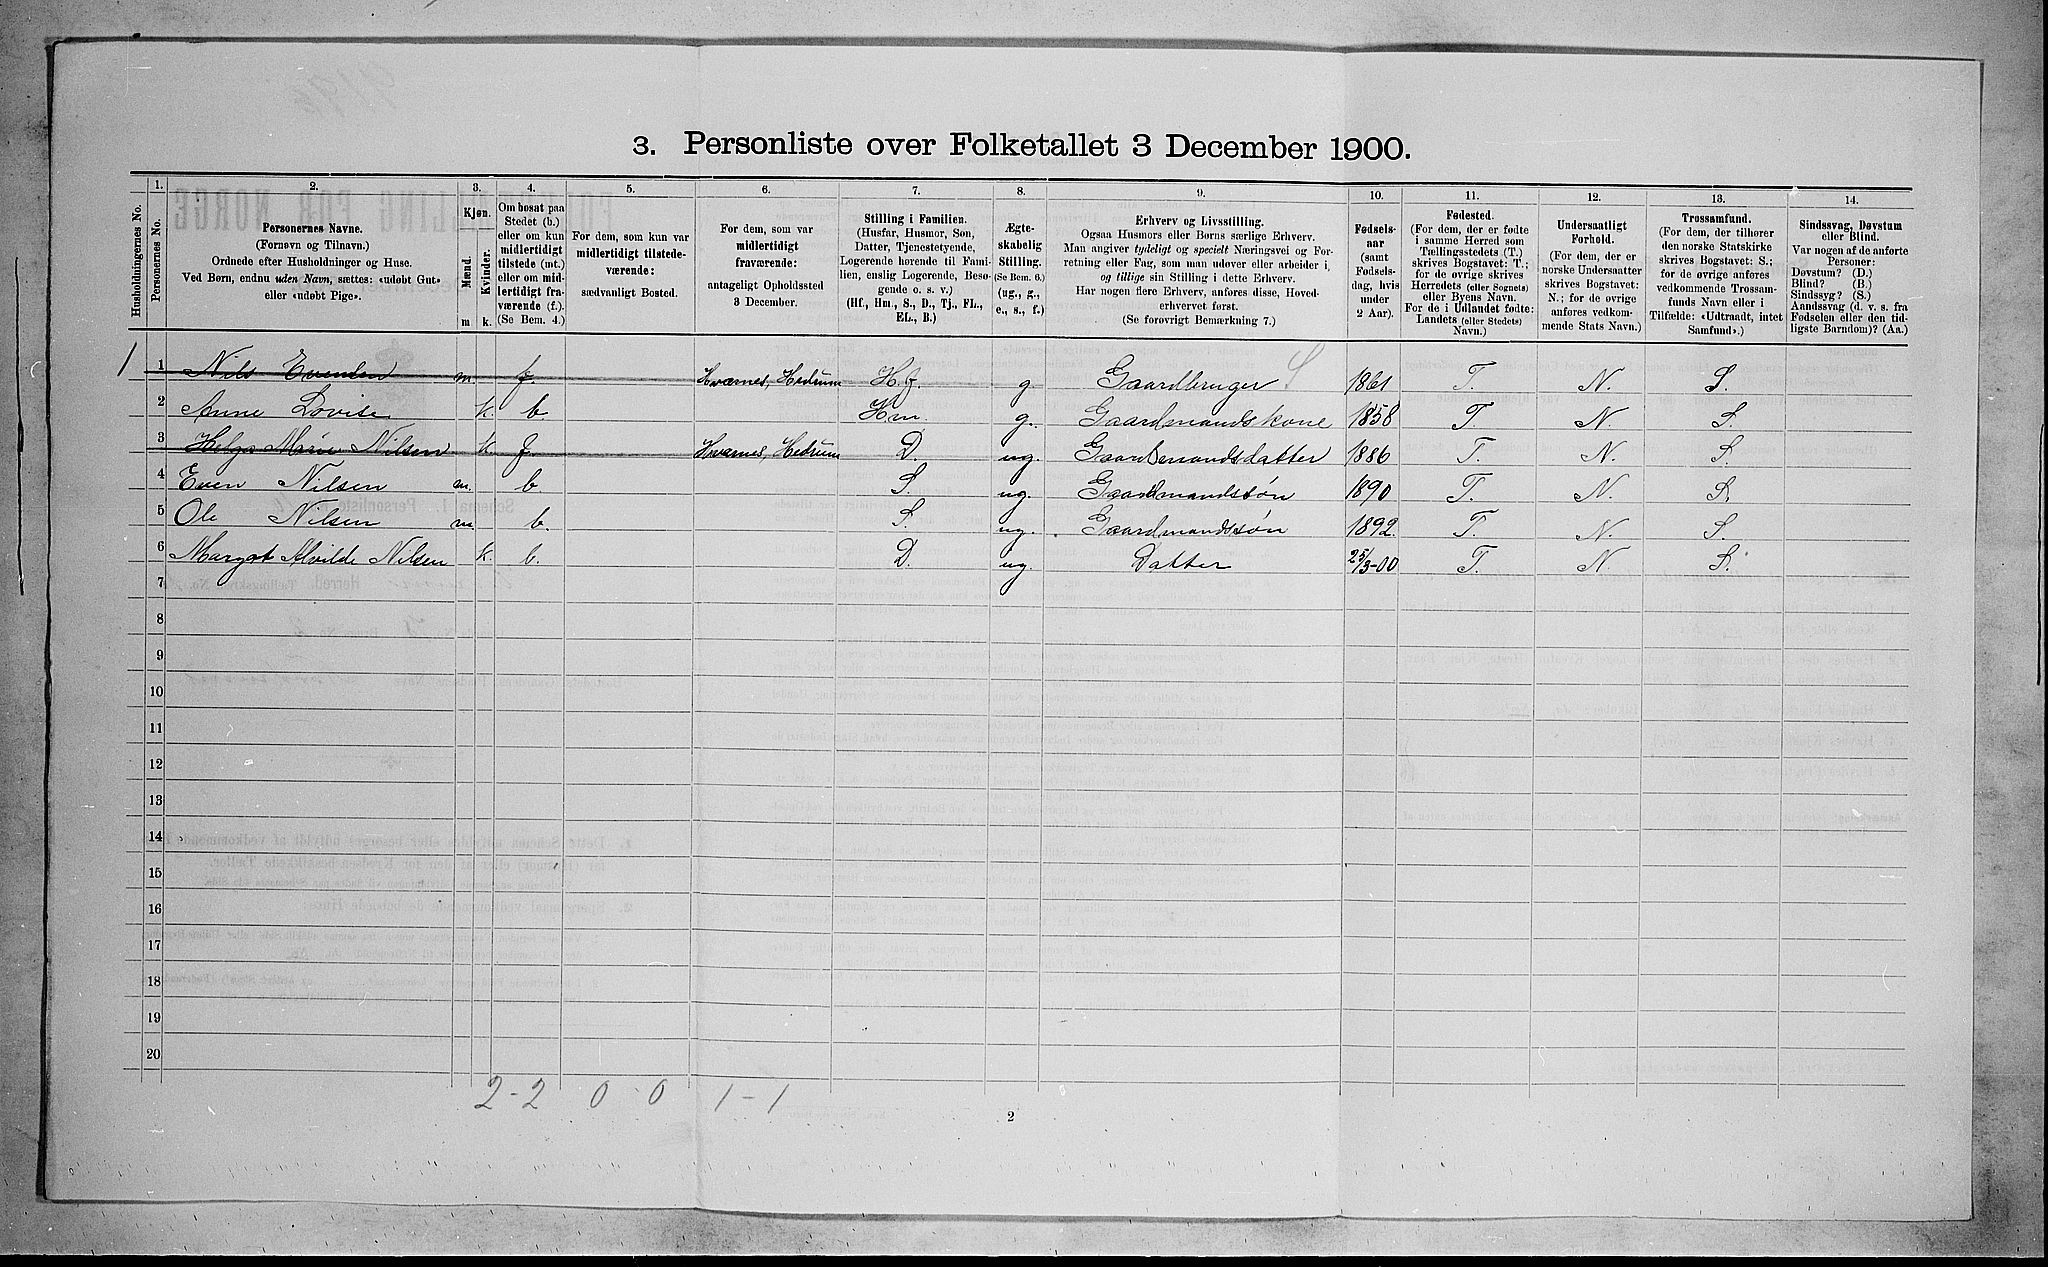 3. Personliste over Folketallet 3 December 1900.
Husholdningernes No.
1.
Personernes No.
2.
Personernes Navne.
(Fornavn og Tilnavn.)
Ordnede efter Husholdninger og Huse.
Ved Børn, endnu uden Navn, sættes: «udøbt Gut»
eller «udøbt Pige».
3.
Kjøn.
Mænd.
Kvinder.
m
k.
4.
Om bosat paa
Stedet (b.)
eller om kun
midlertidigt
tilstede (mt.)
eller om mid-
lertidigt fra-
værende (f.).
(Se Bem. 4.)
5.
For dem, som kun var
midlertidigt tilstede-
værende:
sædvanligt Bosted.
6.
For dem, som var
midlertidigt
fraværende:
antageligt Opholdssted
3 December.
7.
Stilling i Familien.
(Husfar, Husmor, Søn,
Datter, Tjenestetyende,
Logerende hørende til Fami-
lien, enslig Logerende, Besø-
gende o. s. v.)
(Hf., Hm., S., D., Tj., FL.,
EL., B.)
8.
Ægte-
skabelig
Stilling.
(Se Bem. 6.)
(ug., g.,
e., s., f.)
9.
Erhverv og Livsstilling.
Ogsaa Husmors eller Børns særlige Erhverv.
Man angiver tydeligt og specielt Næringsvei og For-
retning eller Fag, som man udøver eller arbeider i,
og tillige sin Stilling i dette Erhverv.
Har nogen flere Erhverv, anføres disse, Hoved-
erhvervet først.
(Se forøvrigt Bemærkning 7.)
10.
Fødsels-
aar
(samt
Fødsels-
dag, hvis
under
2 Aar).
11.
Fødested.
(For dem, der er fødte
i samme Herred som
Tællingsstedets (T.)
skrives Bogstavet: T.;
for de øvrige skrives
Herredets (eller Sognets)
eller Byens Navn.
For de i Udlandet fødte:
Landets (eller Stedets)
Navn.)
12.
Undersaatligt
Forhold.
(For dem, der er
norske Undersaatter
skrives Bogstavet:
N.; for de øvrige
anføres vedkom-
mende Stats Navn.)
13.
Trossamfund.
(For dem, der tilhører
den norske Statskirke
skrives Bogstavet: S.;
for de øvrige anføres
vedkommende Trossam-
funds Navn eller i
Tilfælde: «Udtraadt, intet
Samfund».)
14.
Sindssvag, Døvstum
eller Blind.
Var nogen af de anførte
Personer:
Døvstum? (D.)
Blind? (B.)
Sindssyg? (S.)
Aandssvag (d. v. s. fra
Fødselen eller den tid-
ligste Barndom)? (Aa.)
1 1 Nils Evensen m. f. Hvarnes, Hedrum H.f g. Gaardbruger S 1861 T. N. S.
2 Anne Lovise k. b Hm. g. Gaardmandskone 1858 T. N. S.
3 Helga Marie Nilsen k. f. Hvarnes, Hedrum D. ug. Gaardmandsdatter 1886 T. N. S.
4 Even Nilsen m. b. S. ug. Gaardmandssøn 1890 T. N. S.
5 Ole Nilsen m b. S. ug. Gaardmandssøn 1892. T. N. S.
6 Margot Alvilde Nilsen k. b. D. ug. Datter 25/3-00 T. N S.
7
8
9
10
11
12
13
14
15
16
17
18
19
20
2-2 0 0 1-1
2